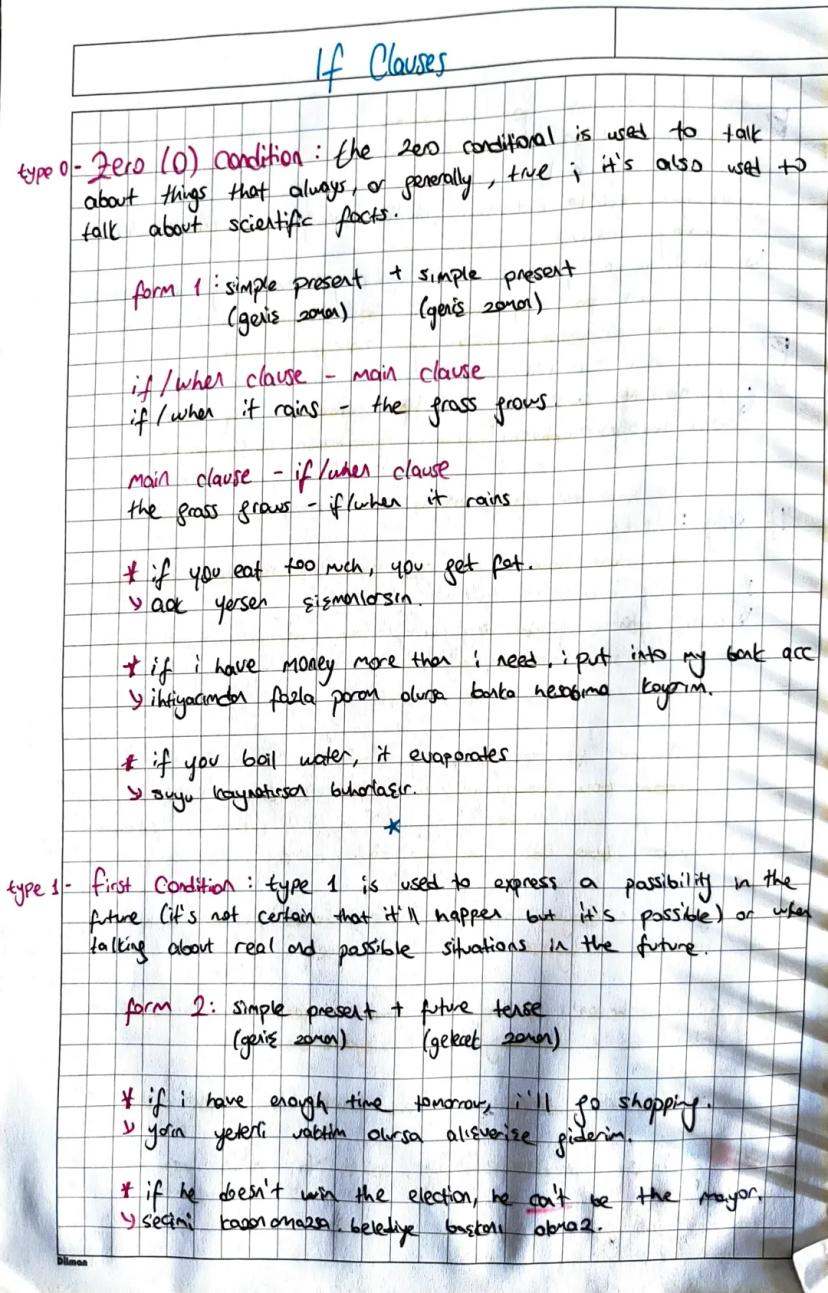 If Clauses
type 0 - Zero (0) Condition : the zero conditional is used to talk
about things that always, or generally, true ; it's also used to
talk about scientific facts.
form 1 : simple present + simple present
(geniş zaman) (geniş zaman)
if / when clause - main clause
if / when it rains - the grass grows
main clause - if / when clause
the grass grows - if / when it rains
* if you eat too much, you get fat.
çok yersen şişmanlarsın.
* if i have money more than i need, i put into my bank acc
ihtiyacımdan fazla param olursa banka hesabıma koyarım.
* if you boil water, it evaporates
suyu kaynatırsan buharlaşır.
*
type 1 - first Condition : type 1 is used to express a possibility in the
future (it's not certain that it'll happen but it's possible) or when
talking about real and possible situations in the future.
form 2 : simple present + future tense
(geniş zaman) (gelecek zaman)
* if i have enough time tomorrow, i'll go shopping.
yarın yeterli vaktim olursa alışverişe giderim.
* if he doesn't win the election, he can't be the mayor.
seçimi kazanamazsa, belediye başkanı olamaz.
Dilman